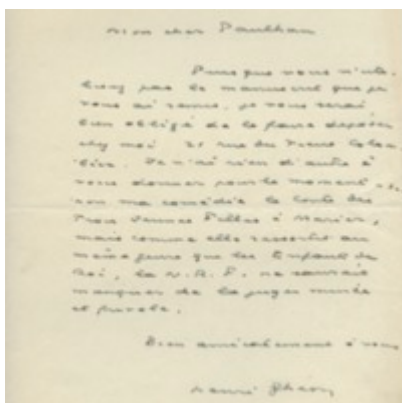 Mon cher Paulhan
Puisque vous n'uti-
lisez pas le manuscrit que je
vous ai remis, je vous serai
bien obligé de le faire déposer
chez moi 21 rue du Vieux Colom-
bier. Je n'ai rien d'autre à
vous donner pour le moment
ma comédie le Conte des
Trois Jeunes Filles à Marier,
mais comme elle ressortit au
même genre que les Enfants du
Roi, la N.R.F. ne saurait
manquer de la juger
et
Bien amicalement à vous
Henri Ghéon